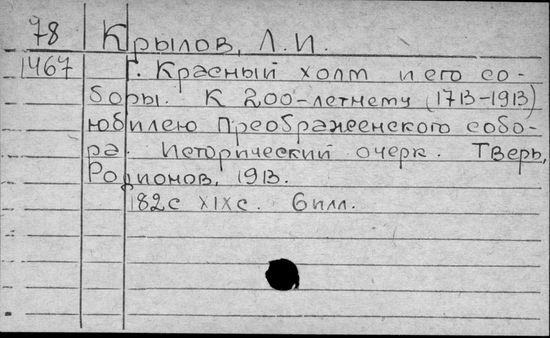 78 Крылов, Л. И.
1467 г. Красный холм и его со-
боры. К 200-летнему (1713-1913)
юбилею Преображенского собо-
ра. Исторический очерк. Тверь,
Родионов, 1913.
182с XIXс. 6илл.